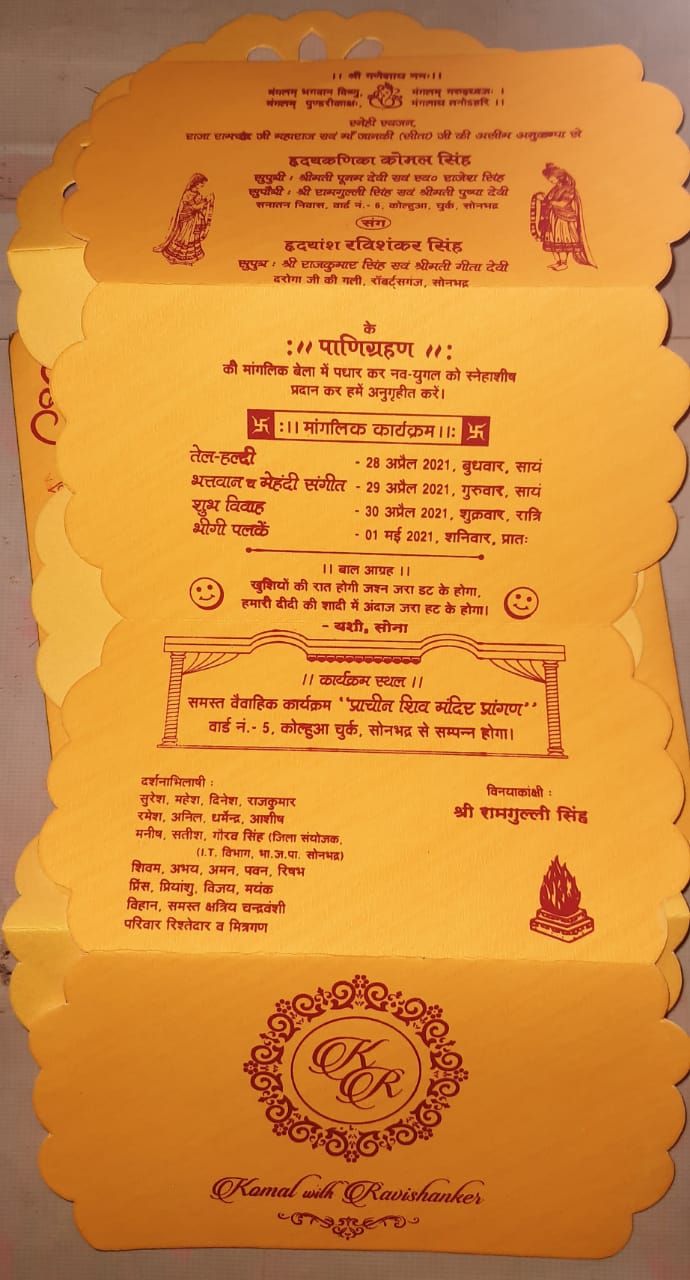 ।। श्री गणेशाय नमः।।
मंगलम् भगवान विष्णु, मंगलम् गरुड़ध्वजः ।
मंगलम् पुण्डरीकाक्षः, मंगलाय तनोऽहरि ।।
स्नेही स्वजन,
राजा रामचंद्र जी महाराज एवं माँ जानकी (सीता) जी की असीम अनुकम्पा से
हृदयकणिका कोमल सिंह
सुपुत्री : श्रीमती पूनम देवी एवं स्व० राजेश सिंह
सुपौत्री : श्री रामगुल्ली सिंह एवं श्रीमती पुष्पा देवी
सनातन निवास, वार्ड नं.- 6, कोल्हुआ, चुर्क, सोनभद्र
संग
हृदयांश रविशंकर सिंह
सुपुत्र : श्री राजकुमार सिंह एवं श्रीमती गीता देवी
दरोगा जी की गली, रॉबर्ट्सगंज, सोनभद्र
के
:।। पाणिग्रहण ।।:
की मांगलिक बेला में पधार कर नव-युगल को स्नेहाशीष
प्रदान कर हमें अनुगृहीत करें।
卐 :।। मांगलिक कार्यक्रम ।।: 卐
तेल-हल्दी - 28 अप्रैल 2021, बुधवार, सायं
भत्तवान व मेहंदी संगीत - 29 अप्रैल 2021, गुरुवार, सायं
शुभ विवाह - 30 अप्रैल 2021, शुक्रवार, रात्रि
भीगी पलकें - 01 मई 2021, शनिवार, प्रातः
।। बाल आग्रह ।।
खुशियों की रात होगी जश्न जरा डट के होगा,
हमारी दीदी की शादी में अंदाज जरा हट के होगा।
- यशी, सोना
।। कार्यक्रम स्थल ।।
समस्त वैवाहिक कार्यक्रम "प्राचीन शिव मंदिर प्रांगण"
वार्ड नं.- 5, कोल्हुआ चुर्क, सोनभद्र से सम्पन्न होगा।
दर्शनाभिलाषी :
सुरेश, महेश, दिनेश, राजकुमार
रमेश, अनिल, धर्मेन्द्र, आशीष
मनीष, सतीश, गौरव सिंह (जिला संयोजक,
(I.T. विभाग, भा.ज.पा. सोनभद्र)
शिवम, अभय, अमन, पवन, रिषभ
प्रिंस, प्रियांशु, विजय, मयंक
विहान, समस्त क्षत्रिय चन्द्रवंशी
परिवार रिश्तेदार व मित्रगण
विनयाकांक्षी :
श्री रामगुल्ली सिंह
K
R
Komal with Ravishanker